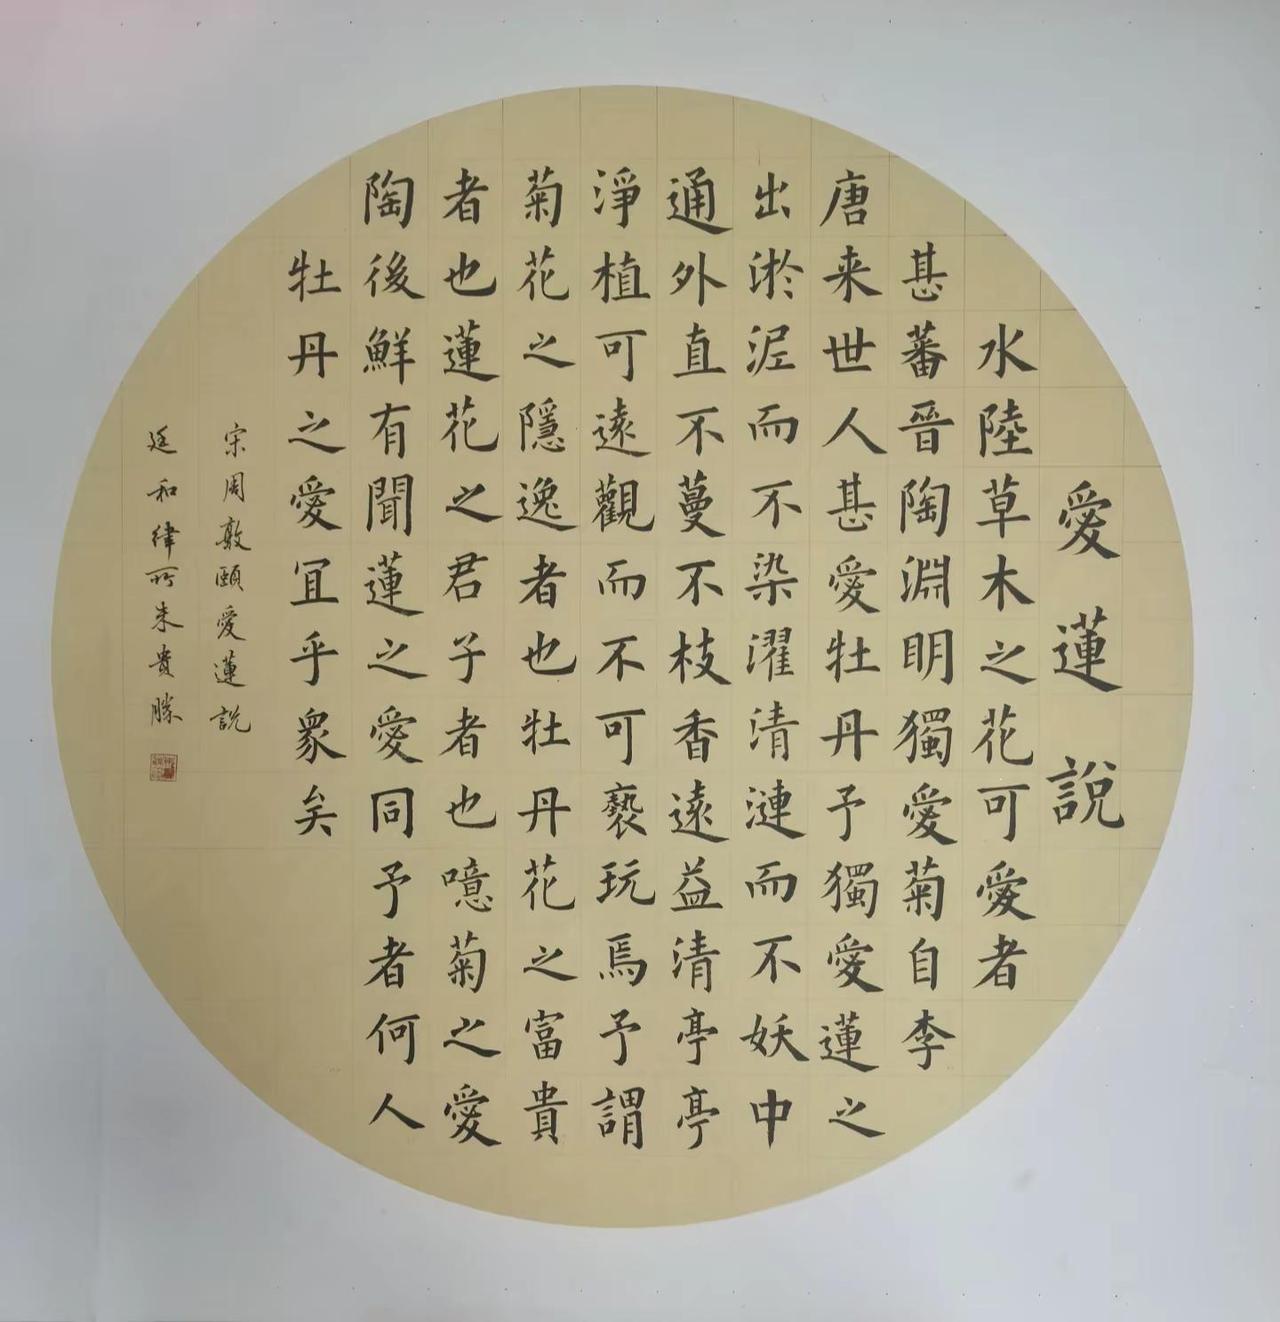 愛蓮説
水陸草木之花可愛者
甚蕃晉陶淵明獨愛菊自李
唐来世人甚愛牡丹予獨愛蓮之
出淤泥而不染濯清漣而不妖中
通外直不蔓不枝香遠益清亭亭
淨植可遠觀而不可褻玩焉予謂
菊花之隱逸者也牡丹花之富貴
者也蓮花之君子者也噫菊之愛
陶後鮮有聞蓮之愛同予者何人
牡丹之愛宜乎衆矣
宋周敦頤愛蓮説
廷和律所朱貴勝